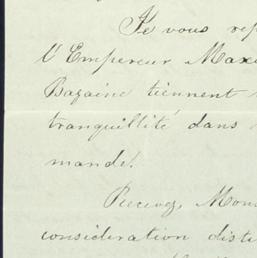 Je vous rep
l'Empereur Maxi
Bazaine tiennent
tranquillité dans
mandé.
Recevez, Mons
considération dist